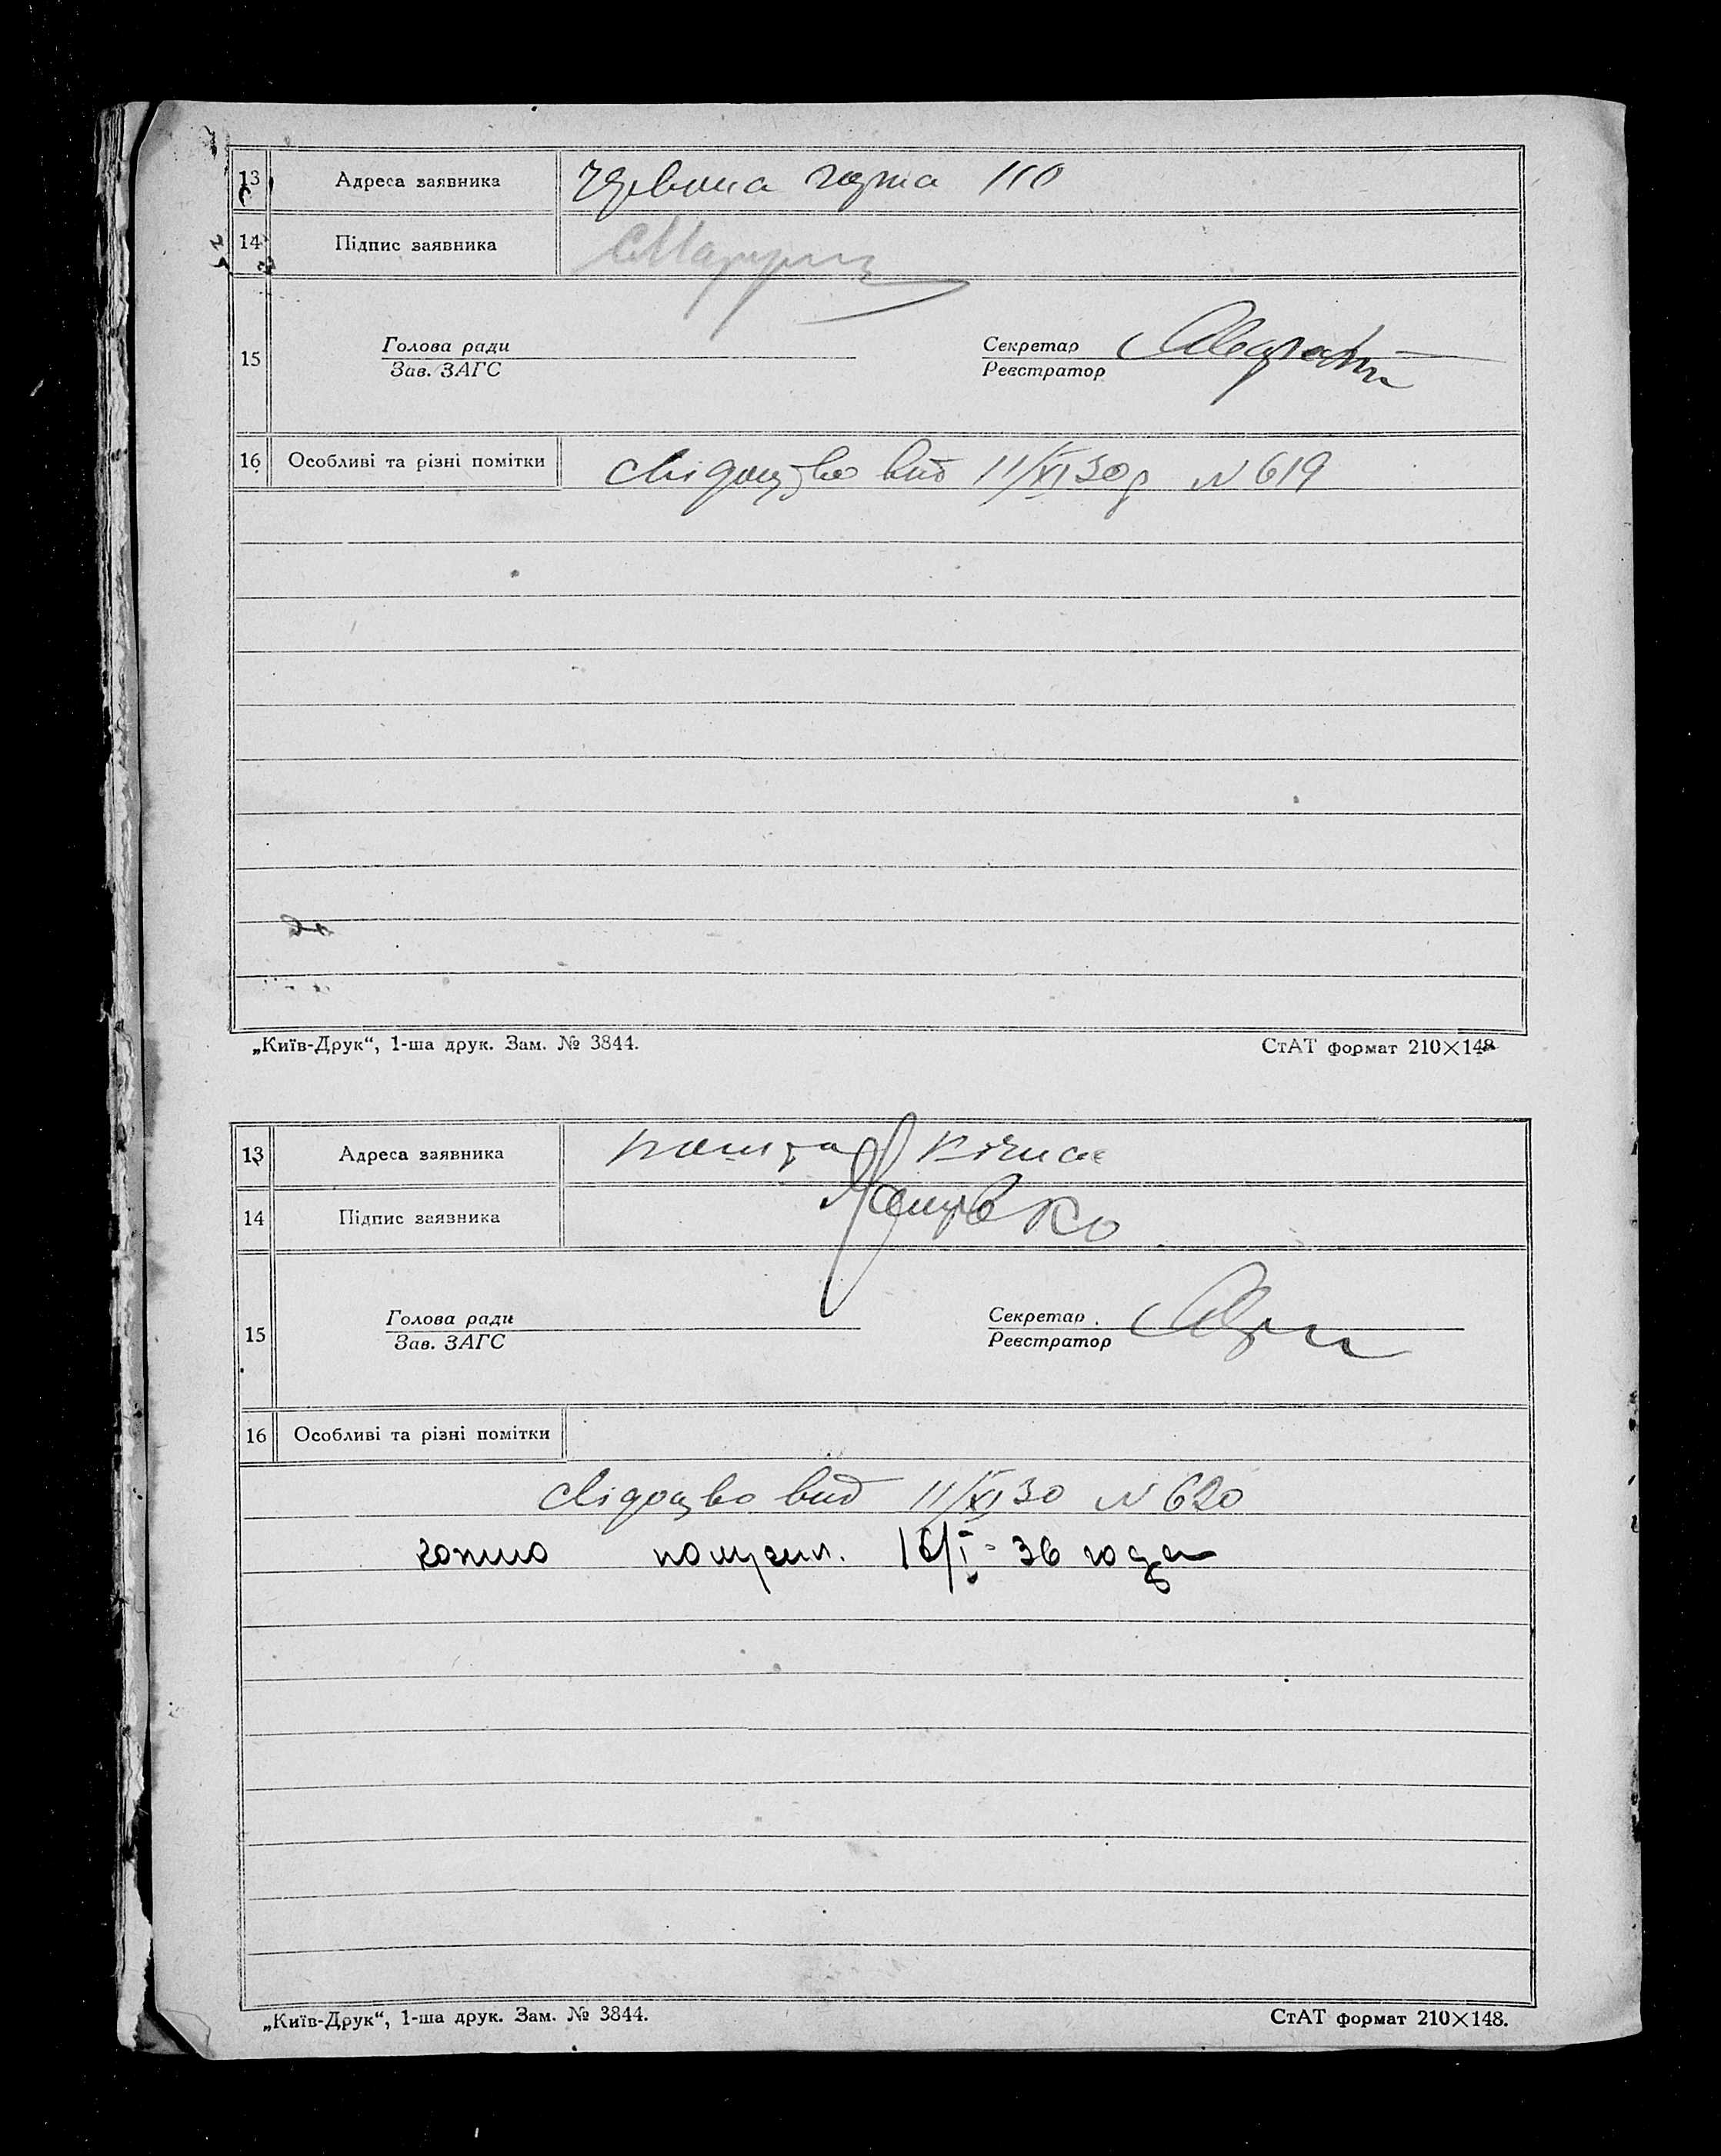 13 Адреса заявника Червона 110
14 Підпис заявника
15 Голова ради Секретар
Зав. ЗАГС Реєстратор
16 Особливі та різні помітки свідоцтво вид 11/XI 30р N 619
„Київ-Друк“, 1-ша друк. Зам. № 3844. СтАТ формат 210×148
13 Адреса заявника
14 Підпис заявника
15 Голова ради Секретар
Зав. ЗАГС Реєстратор
16 Особливі та різні помітки
свідоцво вид 11/XI 30 N 620
копию получил. 16/I - 36 года
„Київ-Друк“, 1-ша друк. Зам. № 3844. СтАТ формат 210×148.